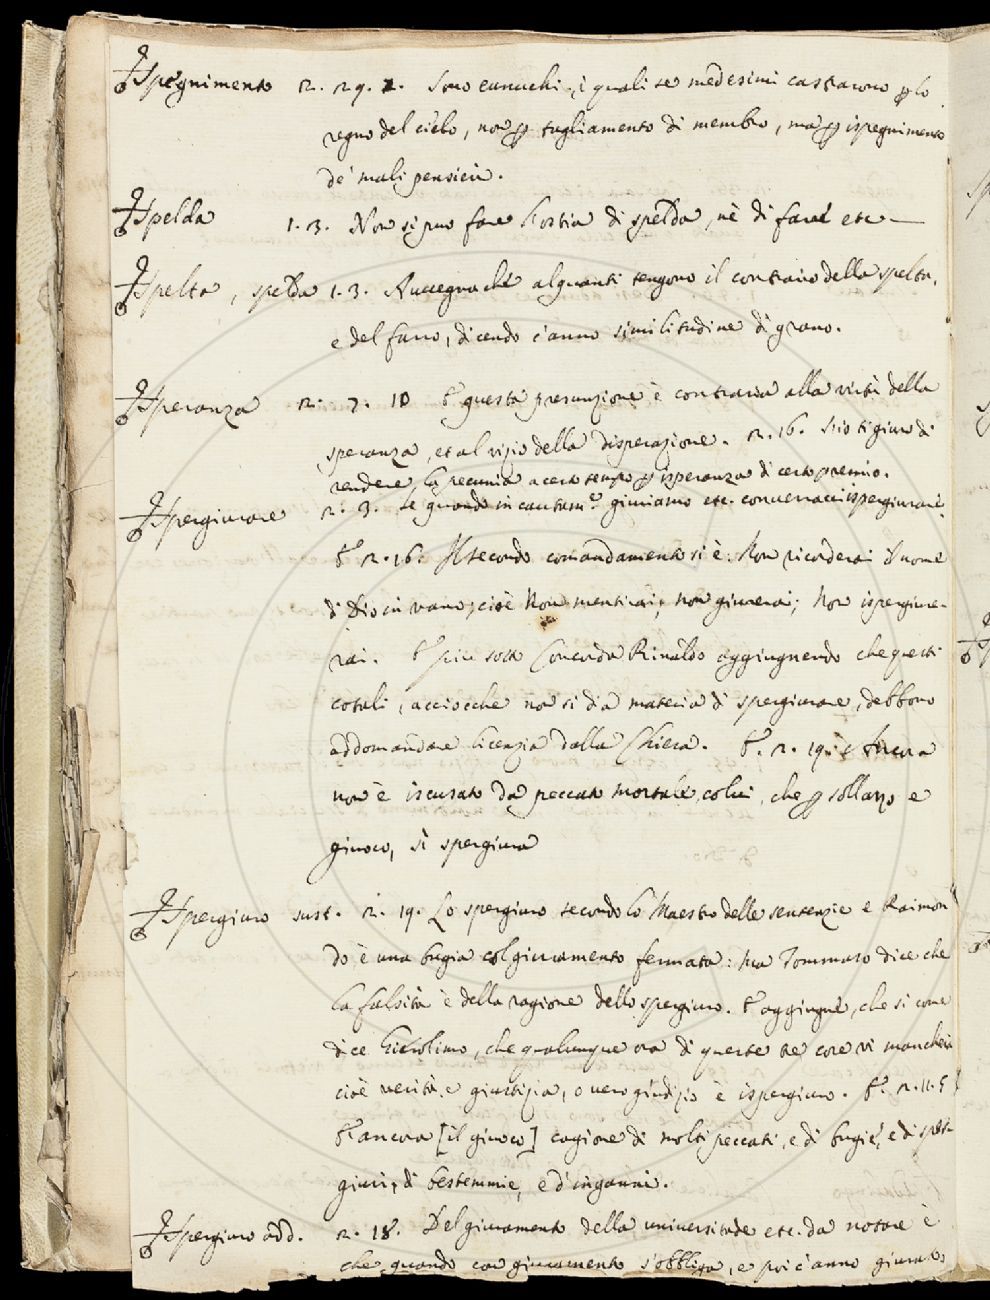 Ispegnimento 2. 29. 2. Sono eunuchi, i quali se medesimi castrarono p lo
regno del cielo, non p tagliamento di membro, ma p ispegnimento
de' mali pensieri.
Spelda 1. 3. Non si può fare l'ostia di spelda, nè di farre etc—
Spelta, spelda 1. 3. Avvegnachè alquanti tengono il contrario della spelta,
e del farro, dicendo c'anno similitudine di grano.
Speranza 2. 7. 10 E questa presunzione è contraria alla virtù della
speranza, et al vizio della disperazione. 2. 16. S'io ti giuro di
rendere la pecunia a certo tempo p isperanza di certo premio.
Ispergiurare 2. 3. Se quando incautam.e giuriamo etc. converracci ispergiurare.
E 2. 16. Il secondo comandamento si è: Non ricorderai il nome
di Dio in vano; cioè Non mentirai; non giurerai; Non ispergiure-
rai. E più sotto Concorda Rinaldo aggiugnendo che questi
cotali, acciocchè non si dia materia di spergiurare, debbono
addomandare licenzia dalla Chiesa. E. 2. 19. e Ancora
non è iscusato da peccato mortale colui, che p sollazzo e
giuoco, si spergiura
Spergiuro sust. 2. 19. Lo spergiuro secondo lo Maestro delle sentenzie e Raimon
do è una bugia col giuramento fermata: Ma Tommaso dice che
la falsità è della ragione dello spergiuro. E aggiugne, che si come
dice Gierolimo, che qualunque ora di queste tre cose vi mancheri
cioè verità e giustizia, o vero giudizio è ispergiuro. E. 2. 11. 5
E ancora [il giuoco] cagione di molti peccati, e di bugie, e di sper
giuri, di bestemmie, e d'inganni.
Spergiuro add. 2. 18. Del giuramento della universitade etc. da notare è
che quando con giuramento s'obbliga, e poi c'anno giurato